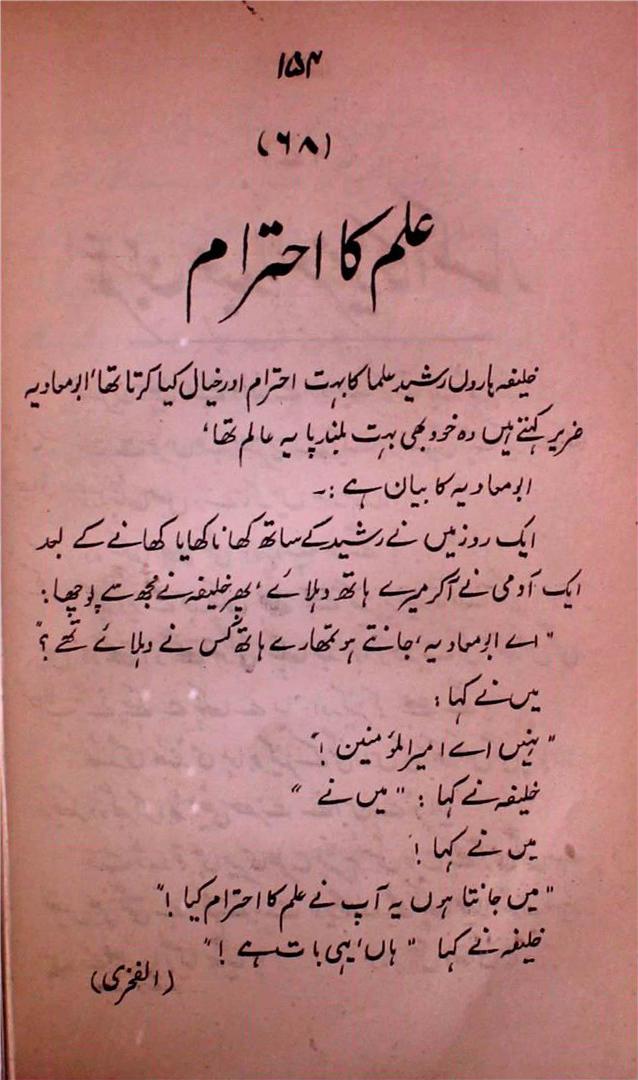 ۱۵۴
(۶۸)
علم کا احترام
خلیفہ ہارون رشید علما کا بہت احترام اور خیال کیا کرتا تھا، ابو معاویہ
ضریر کہتے ہیں وہ خود بھی بہت بلند پایہ عالم تھا،
ابو معاویہ کا بیان ہے :۔
ایک روز میں نے رشید کے ساتھ کھانا کھایا کھانے کے بعد
ایک آدمی نے آکر میرے ہاتھ دہلائے، پھر خلیفہ نے مجھ سے پوچھا:
"اے ابو معاویہ، جانتے ہو تمھارے ہاتھ کس نے دہلائے تھے؟"
میں نے کہا:
"نہیں اے امیر المؤمنین!"
خلیفہ نے کہا: "میں نے"
میں نے کہا!
"میں جانتا ہوں یہ آپ نے علم کا احترام کیا!"
خلیفہ نے کہا "ہاں، یہی بات ہے!"
(الفخری)